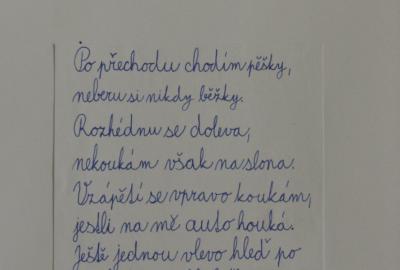 Po přechodu chodím pěšky,
neberu si nikdy běžky.
Rozhédnu se doleva,
nekoukám však na slona.
Vzápětí se vpravo koukám,
jestli na mě auto houká.
Ještě jednou vlevo hleď po